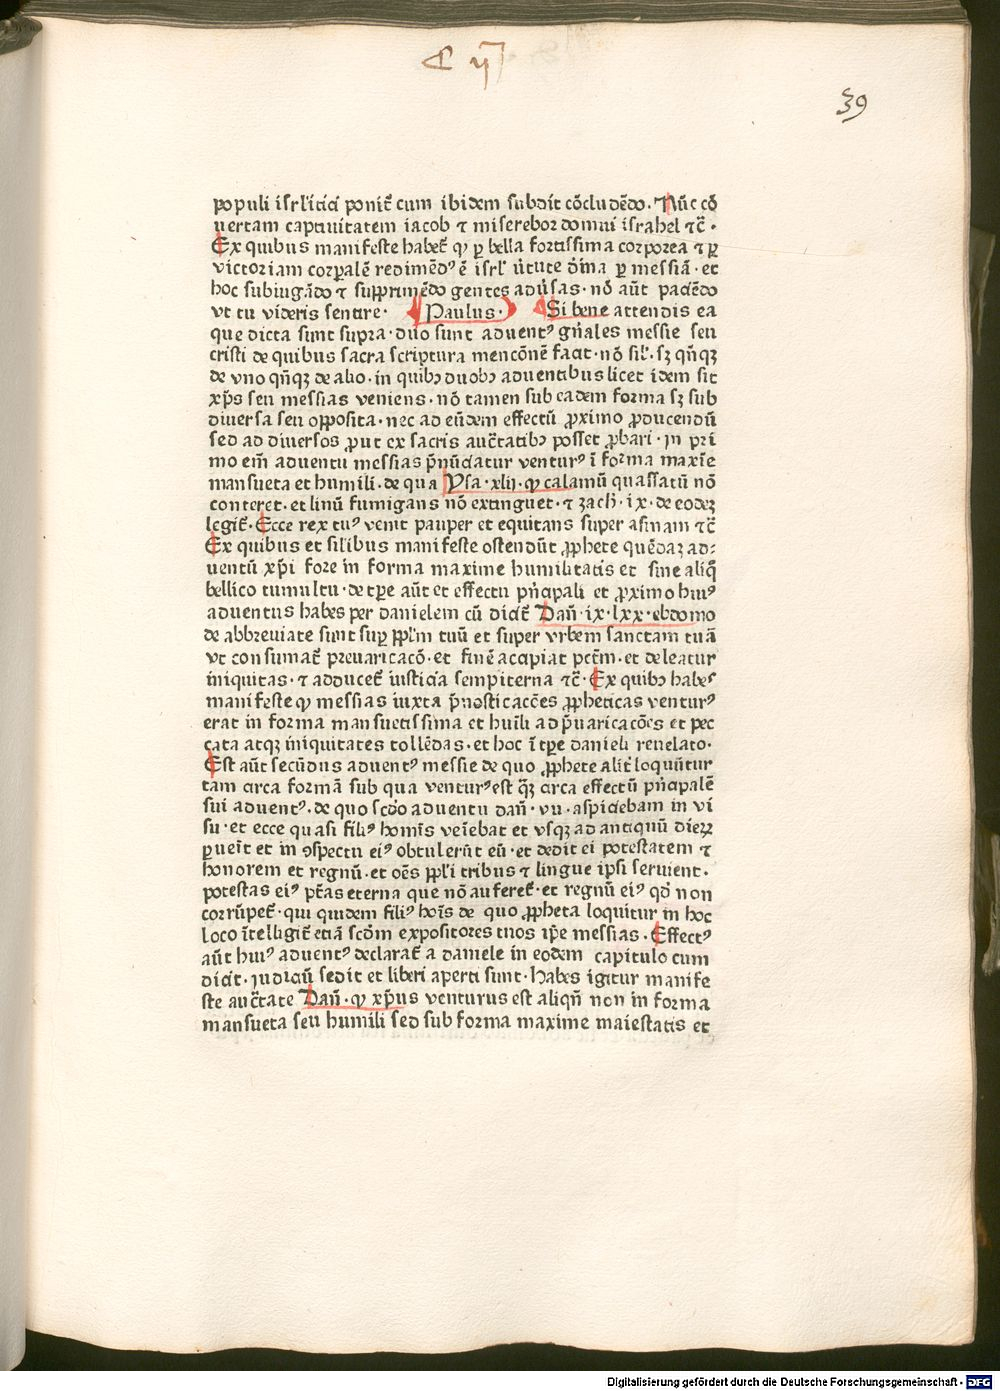 C ij
39
populi isrl'itici ponit᷒ cum ibidem subdit cōcludēdo. Nūc cō
uertam captiuitatem iacob ⁊ miserebor domui israhel ⁊c̄ ·
Ex quibus manifeste habet᷒ ꝙ ꝑ bella fortissima corporea ⁊ ꝑ
victoriam corꝑalē redimēdꝰ ē isrl' v̓tute dīna ꝑ messiā · et
hoc subiugādo ⁊ supprimēdo gentes adu̓sas · nō aūt paciēdo
vt tu videris sentire · Paulus · Si bene attendis ea
que dicta sunt supra · duo sunt aduentꝰ gn̄ales messie seu
cristi de quibus sacra scriptura mencōnē facit · nō sil'. sꝫ qn̄qꝫ
de vno qn̄qꝫ de alio · in quibꝫ duobꝫ aduentibus licet idem sit
xp̄s seu messias veniens · nō tamen sub eadem forma sꝫ sub
diuersa seu opposita · nec ad eūdem effectū ꝓximo ꝓducendū
sed ad diuersos ꝓut ex sacris auc̄tatibꝫ posset ꝓbari · in pri
mo em̄ aduentu messias p̄nūciatur venturꝰ ī forma maxīe
mansueta et humili . de qua Ysa · xlij · ꝙ calamū quassatū nō
conteret · et linū fumigans nō extinguet · ⁊ zach . ix · de eodeꝫ
legit᷒ · Ecce rex tuꝰ venit pauper et equitans super asinam ⁊c̄
Ex quibus et sil'ibus manifeste ostendūt ꝓphete quēdaꝫ ad⸗
uentū xp̄i fore in forma maxime humilitatis et sine aliq̄
bellico tumultu · de tꝑe aūt et effectu pn̄cipali et ꝓximo huiꝰ
aduentus habes per danielem cū dicit᷒ Dan̄ · ix · lxx · ebdomo
de abbreuiate sunt suꝑ ppl'm tuū et super vrbem sanctam tuā
vt consumat᷒ preuaricacō · et finē accipiat pctm̄ · et deleatur
iniquitas · ⁊ adducet᷒ iusticia sempiterna ⁊c̄ · Ex quibꝫ habeˢ
manifeste ꝙ messias iuxta p̄nosticaccēs ꝓpheticas venturꝰ
erat in forma mansuetissima et huīli ad p̄uaricacōes et pec
cata atqꝫ iniquitates tollēdas · et hoc ī tꝑe danieli reuelato ·
Est aūt secūdus aduentꝰ messie de quo ꝓphete alit᷒ loquūtur
tam circa formā sub qua venturꝰ est q̄ꝫ circa effectū pn̄cipalē
sui aduentꝰ · de quo scd̄o aduentu dan̄ · vij · aspiciebam in vi
su · et ecce quasi filiꝰ homīs veīebat et vsqꝫ ad antiquū dieꝝ
ꝑueīt et in ꝯspectu eiꝰ obtulerūt eū · et dedit ei potestatem ⁊
honorem et regnū · et oēs ppl'i tribus ⁊ lingue ipsi seruient ·
potestas eiꝰ ptās eterna que nō auferet᷒ · et regnū eiꝰ qd̄ non
corrūpet᷒ · qui quidem filiꝰ hoīs de quo ꝓpheta loquitur in hoc
loco ītelligit᷒ etiā scd̄m expositores tuos ip̄e messias · Effectꝰ
aūt huiꝰ aduentꝰ declarat᷒ a daniele in eodem capitulo cum
dicit · iudiciū sedit et libri aperti sunt · habes igitur manife
ste auc̄tate Dan̄ · ꝙ xp̄us venturus est aliqn̄ non in forma
mansueta seu humili sed sub forma maxime maiestatis et
Digitalisierung gefördert durch die Deutsche Forschungsgemeinschaft - DFG